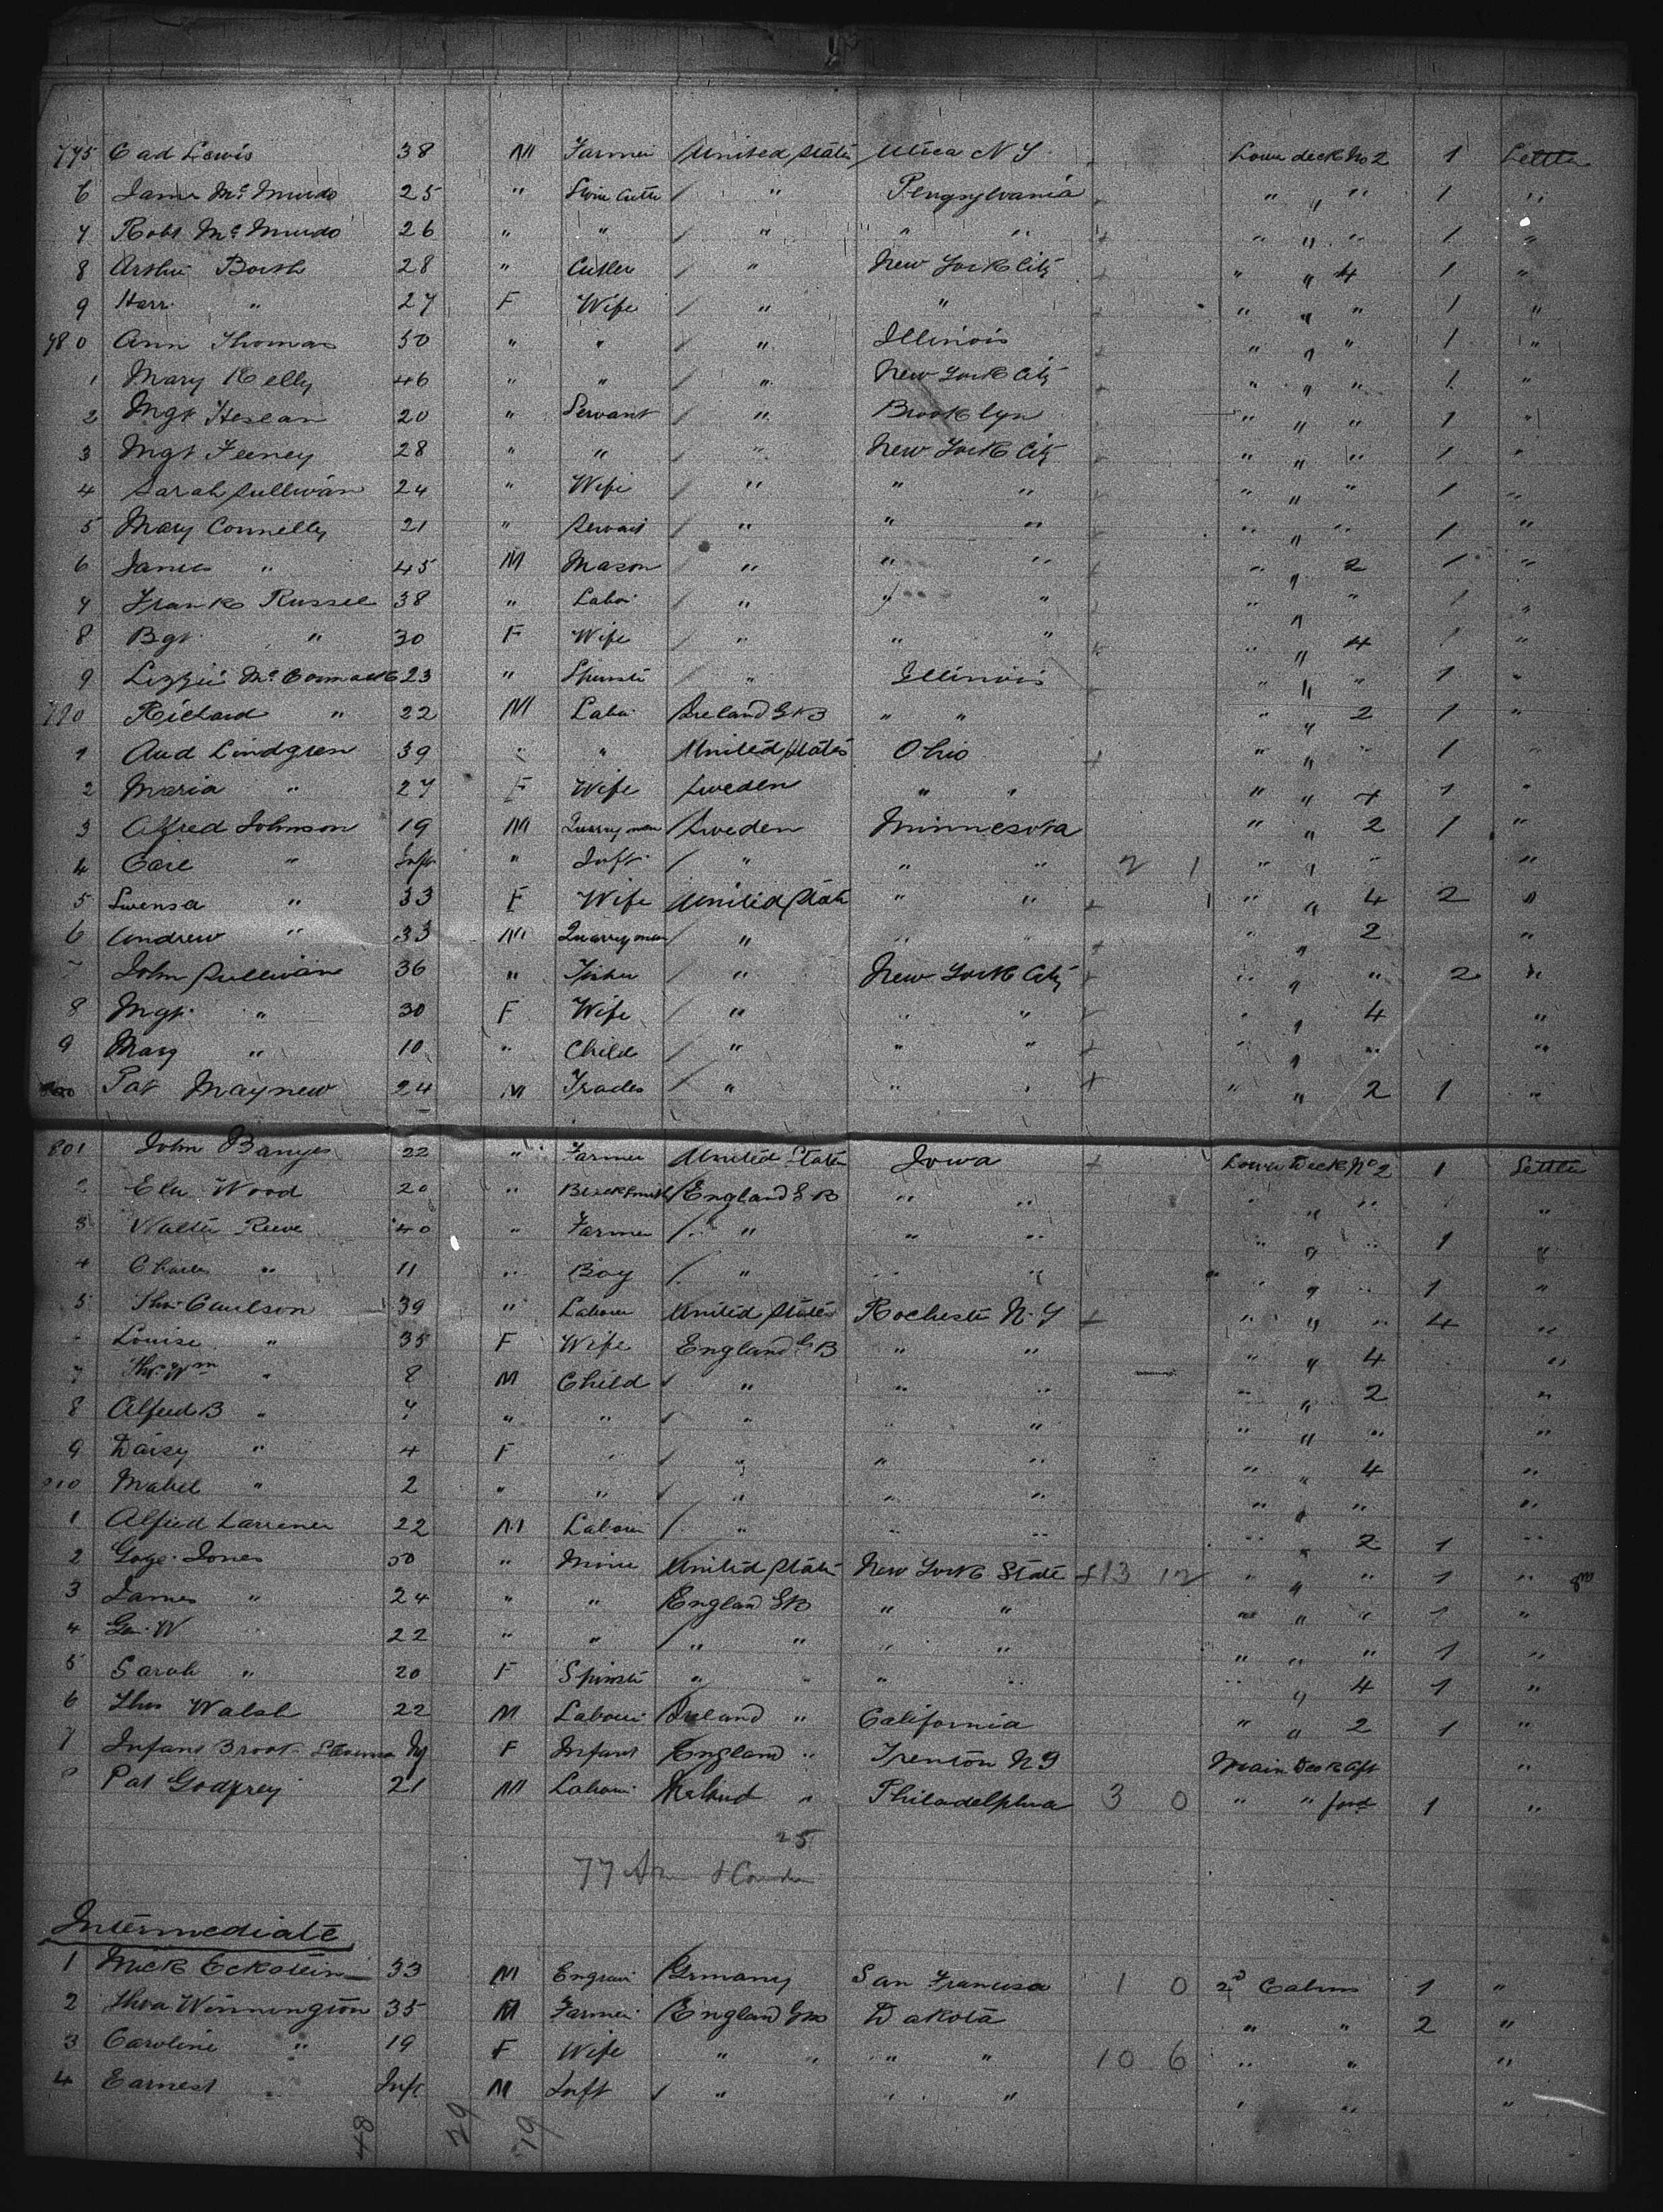 775 Cad Lewis 38 M Farmer United States Utica N Y + Lower deck No 2 1 Settler
6 James McMurdo 25 " Stone Cutter / " Pennsylvania + " " " 1 "
7 Robt McMurdo 26 " " / " " " + " " " 1 "
8 Arthur Booth 28 " Cutler / " New York City + " " 4 1 "
9 Harr. " 27 F Wife / " " + " " " 1 "
780 Ann Thomas 50 " " / " Illinois + " " " 1 "
1 Mary Kelly 46 " " / " New York City + " " " 1 "
2 Mgt Heslan 20 " Servant / " Brooklyn " " " 1 "
3 Mgt Feeney 28 " " / " New York City + " " " 1 "
4 Sarah Sullivan 24 " Wife / " " " + " " " 1 "
5 Mary Connelly 21 " Servant / " " " + " " " 1 "
6 James " 45 M Mason / " " " + " " 2 1 "
7 Frank Russel 38 " Labor / " " " + " " " 1 "
8 Bgt " 30 F Wife / " " " + " " 4 1 "
9 Lizzie McCormack 23 " Spinster / " Illinois + " " " 1 "
790 Richard " 22 M Labor Ireland G B " " " " 2 1 "
1 Aud Lindgren 39 " " United States Ohio + " " " 1 "
2 Maria " 27 F Wife Sweden " " " " 4 1 "
3 Alfred Johnson 19 M Quarryman Sweden Minnesota " " 2 1 "
4 Carl " Inft " Inft / " " " 2 1 " " " "
5 Swensa " 33 F Wife United States " " + " " 4 2 "
6 Andrew " 33 M Quarryman / " " " + " " 2 "
7 John Sullivan 36 " Fisher / " New York City + " " " 2 "
8 Mgt " 30 F Wife / " " " + " " 4 "
9 Mary " 10 " Child / " " " + " " " "
800 Pat Maynew 24 M Trades / " " " + " " 2 1 "
801 John Banyes 22 " Farmer United States Iowa + Lower Deck No 2 1 Settler
2 Wood 20 " Blacksmith / England G B " " " " " "
3 Walter Reeve 40 " Farmer / " " " " " " 1 "
4 Charles " 11 " Boy / " " " " " " 1 "
5 Thos Caulson 39 " Labourer United States Rochester N. Y + " " " 4 "
Louise " 35 F Wife England G B " " " " 4 "
7 Thos Wm " 8 M Child / " " " " " 2 "
8 Alfred B " 7 " " / " " " " " "
9 Daisy " 4 F " / " " " " " 4 "
810 Mabel " 2 " " / " " " " " " "
1 Alfred Larrener 22 M Labour / " " " " " 2 1 "
2 Jones 50 " Miner United States New York State + 13 12 " " " 1 "
3 James " 24 " " England G B " " " " " 1 "
4 Geo. W 22 " " / " " " " " " " 1 "
5 Sarah " 20 F Spinster " " " " " 4 1 "
6 Thos Walsh 22 M Labour Ireland " California " " 2 1 "
7 Infant F Infant England " Trenton N J Main Deck Aft "
8 Pat Godfrey 21 M Labour Ireland " Philadelphia 3 0 " " ford 1 "
25
77
Intermediate
1 Mick Eckstein 33 M Engraver Germany San Francisco 1 0 2d Cabins 1 "
2 Thos Winnington 35 M Farmer England G B Dakota " " 2 "
3 Caroline " 19 F Wife " " " " 10 6 " " "
4 Earnest " Inft M Inft / " " " " " "
48 29 19